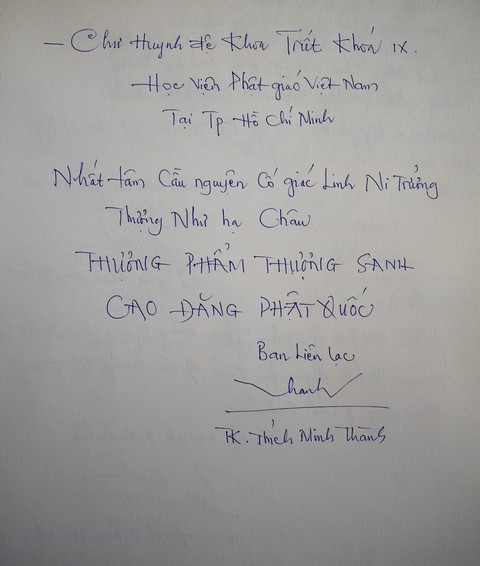 - Chư Huynh đệ Khoa Triết Khoá IX.
- Học Viện Phật giáo Việt Nam
Tại Tp Hồ Chí Minh
Nhất tâm Cầu nguyện Cố giác Linh Ni Trưởng
Thượng Như hạ Châu
THƯỢNG PHẨM THƯỢNG SANH
CAO ĐĂNG PHẬT QUỐC
Ban Liên lạc
Thanh
TK. Thích Minh Thành